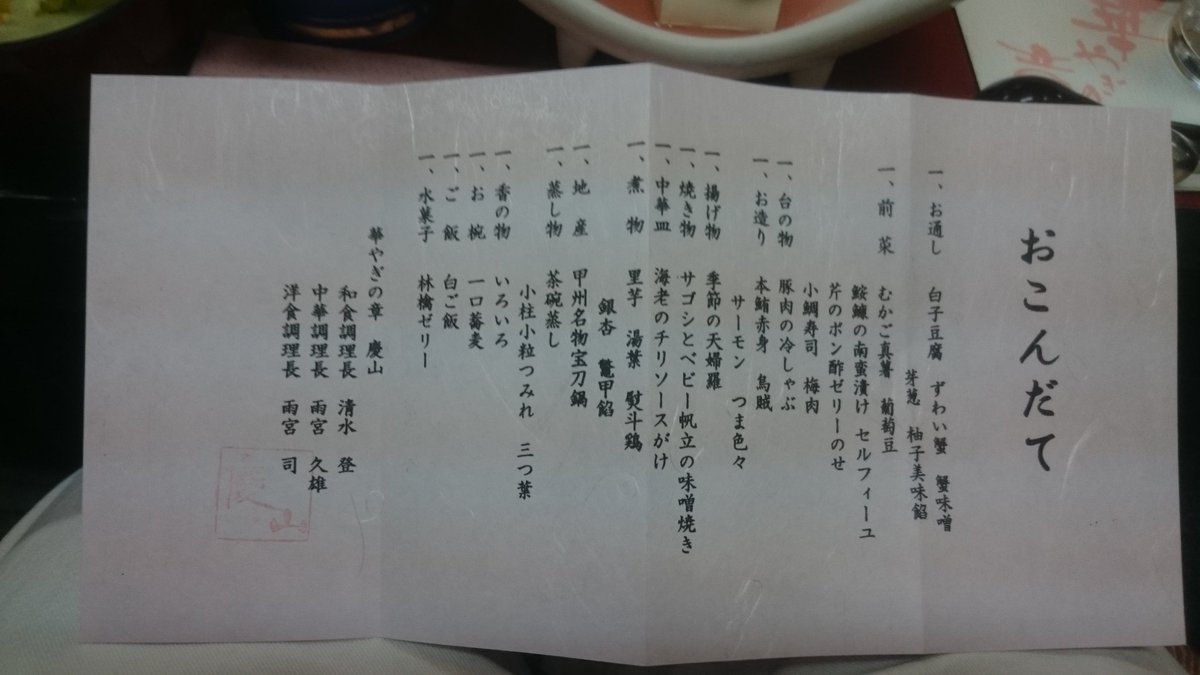 おこんだて
一、お通し 白子豆腐 ずわい蟹 蟹味噌
芽葱 柚子美味餡
一、前菜 むかご真薯 葡萄豆
鮟鱇の南蛮漬け セルフィーユ
芹のポン酢ゼリーのせ
小鯛寿司 梅肉
一、台の物 豚肉の冷しゃぶ
一、お造り 本鮪赤身 烏賊
サーモン つま色々
一、揚げ物 季節の天婦羅
一、焼き物 サゴシとベビー帆立の味噌焼き
一、中華皿 海老のチリソースがけ
一、煮物 里芋 湯葉 熨斗鶏
銀杏 鼈甲餡
一、地産 甲州名物宝刀鍋
一、蒸し物 茶碗蒸し
小柱小粒つみれ 三つ葉
一、香の物 いろいろ
一、お椀 一口蕎麦
一、ご飯 白ご飯
一、水菓子 林檎ゼリー
華やぎの章 慶山
和食調理長 清水 登
中華調理長 雨宮 久雄
洋食調理長 雨宮 司
慶山